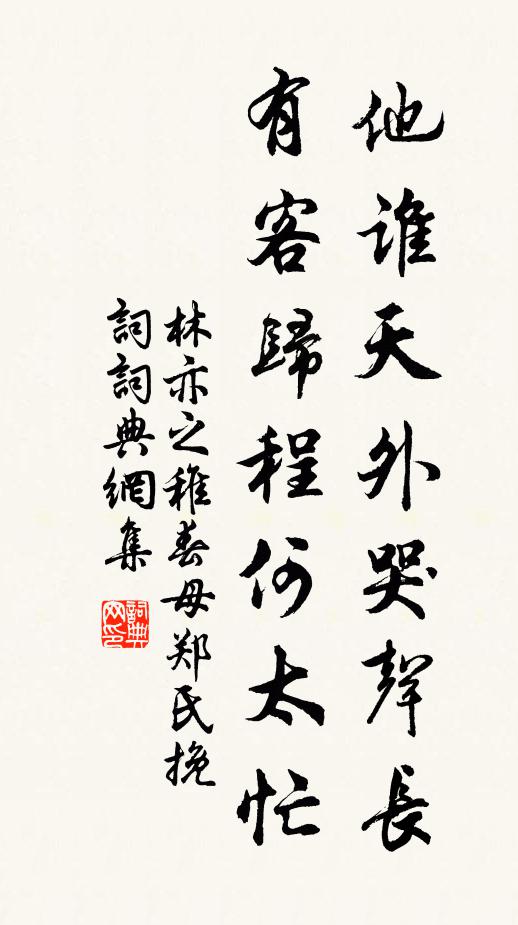 他谁天外哭聲長
有客歸程何太忙
林亦之稚春母郑氏挽
詞詞典網集
詞典網印